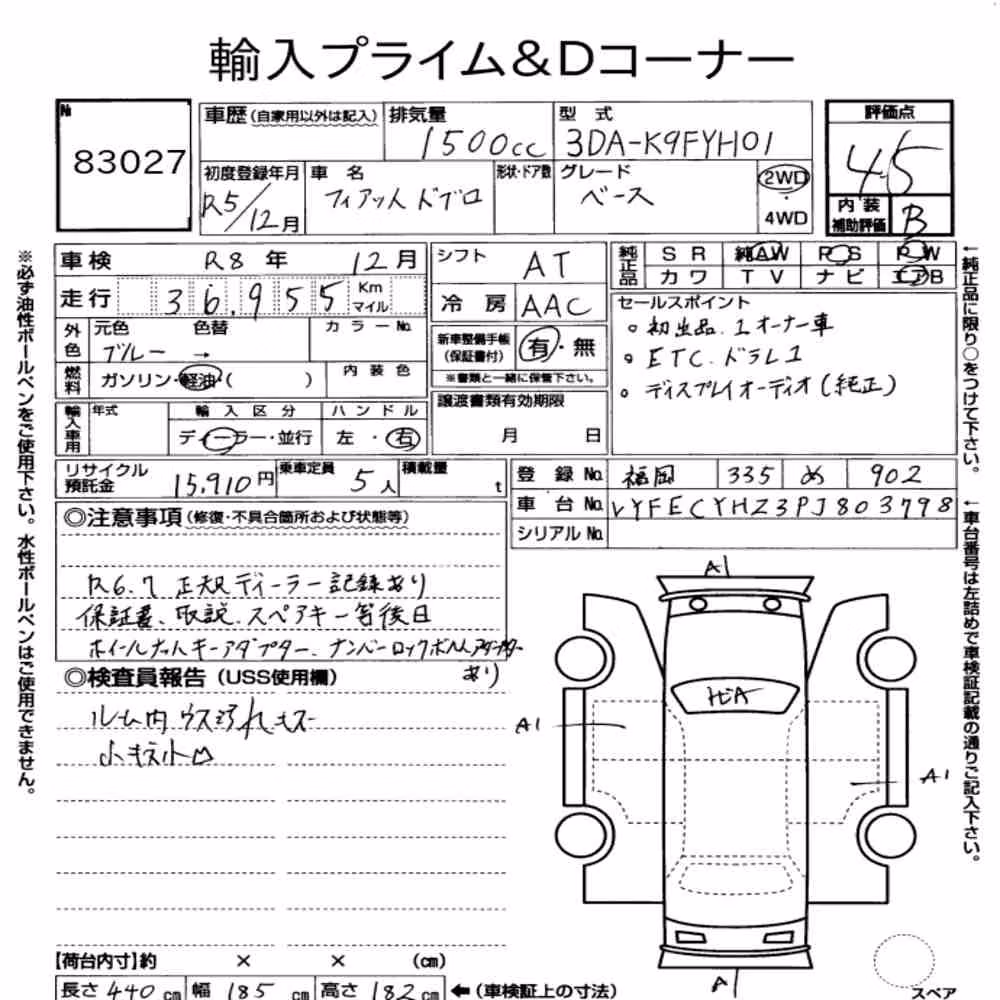 輸入プライム&Dコーナー
№ 83027
車歴 (自家用以外は記入) 排気量 1500cc 型式 3DA-K9FYH01
評価点 4.5
初度登録年月 R5/12月 車名 フィアット ドブロ 形状・ドア数 グレード ベース 2WD・4WD
内装補助評価 B
車検 R8年 12月
走行 36,955 Km マイル
外色 元色 ブルー 色替 → カラーNo.
燃料 ガソリン・軽油・( ) 内装色
輸入車用 年式 輸入区分 ディーラー・並行 ハンドル 左・右
シフト AT
冷房 AAC
新車整備手帳(保証書付) 有・無
※書類と一緒に保管下さい。
譲渡書類有効期限
月 日
純正品 SR 純AW PS PW
カワ TV ナビ エアB
セールスポイント
。初出品、1オーナー車
。ETC.ドラレコ
。ディスプレイオーディオ(純正)
リサイクル預託金 15,910円 乗車定員 5人 積載量 t
登録No. 福岡 335 め 902
車台No. VYFECYHZ3PJ803798
シリアルNo.
◎注意事項 (修復・不具合箇所および状態等)
R6.7 正規ディーラー記録あり
保証書、取説、スペアキー等後日
ホイールナットキーアダプター、ナンバーロックボルトアダプター
あり
◎検査員報告 (USS使用欄)
ルーム内 ウス汚れキズ
小キズ小凹
A1
A1
A1
A1
【荷台内寸】約 × × (cm)
長さ 440 cm 幅 185 cm 高さ 182 cm ←(車検証上の寸法)
スペア
※必ず油性ボールペンをご使用下さい。水性ボールペンはご使用できません。
←純正品に限り○をつけて下さい。
←車台番号は左詰めで車検証記載の通りご記入下さい。